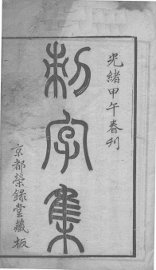 光緒甲午春刊
刺字集
京都榮錄堂藏板